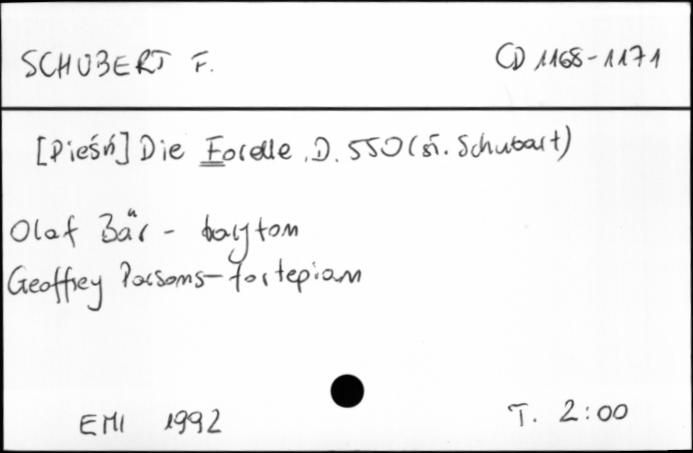 SCHUBERT F. CD 1168-1171
[Pieśń] Die Forelle, D. 550 (sł. Schubart)
Olaf Bär - baryton
Geoffrey Parsons - fortepian
EMI 1992 T. 2:00